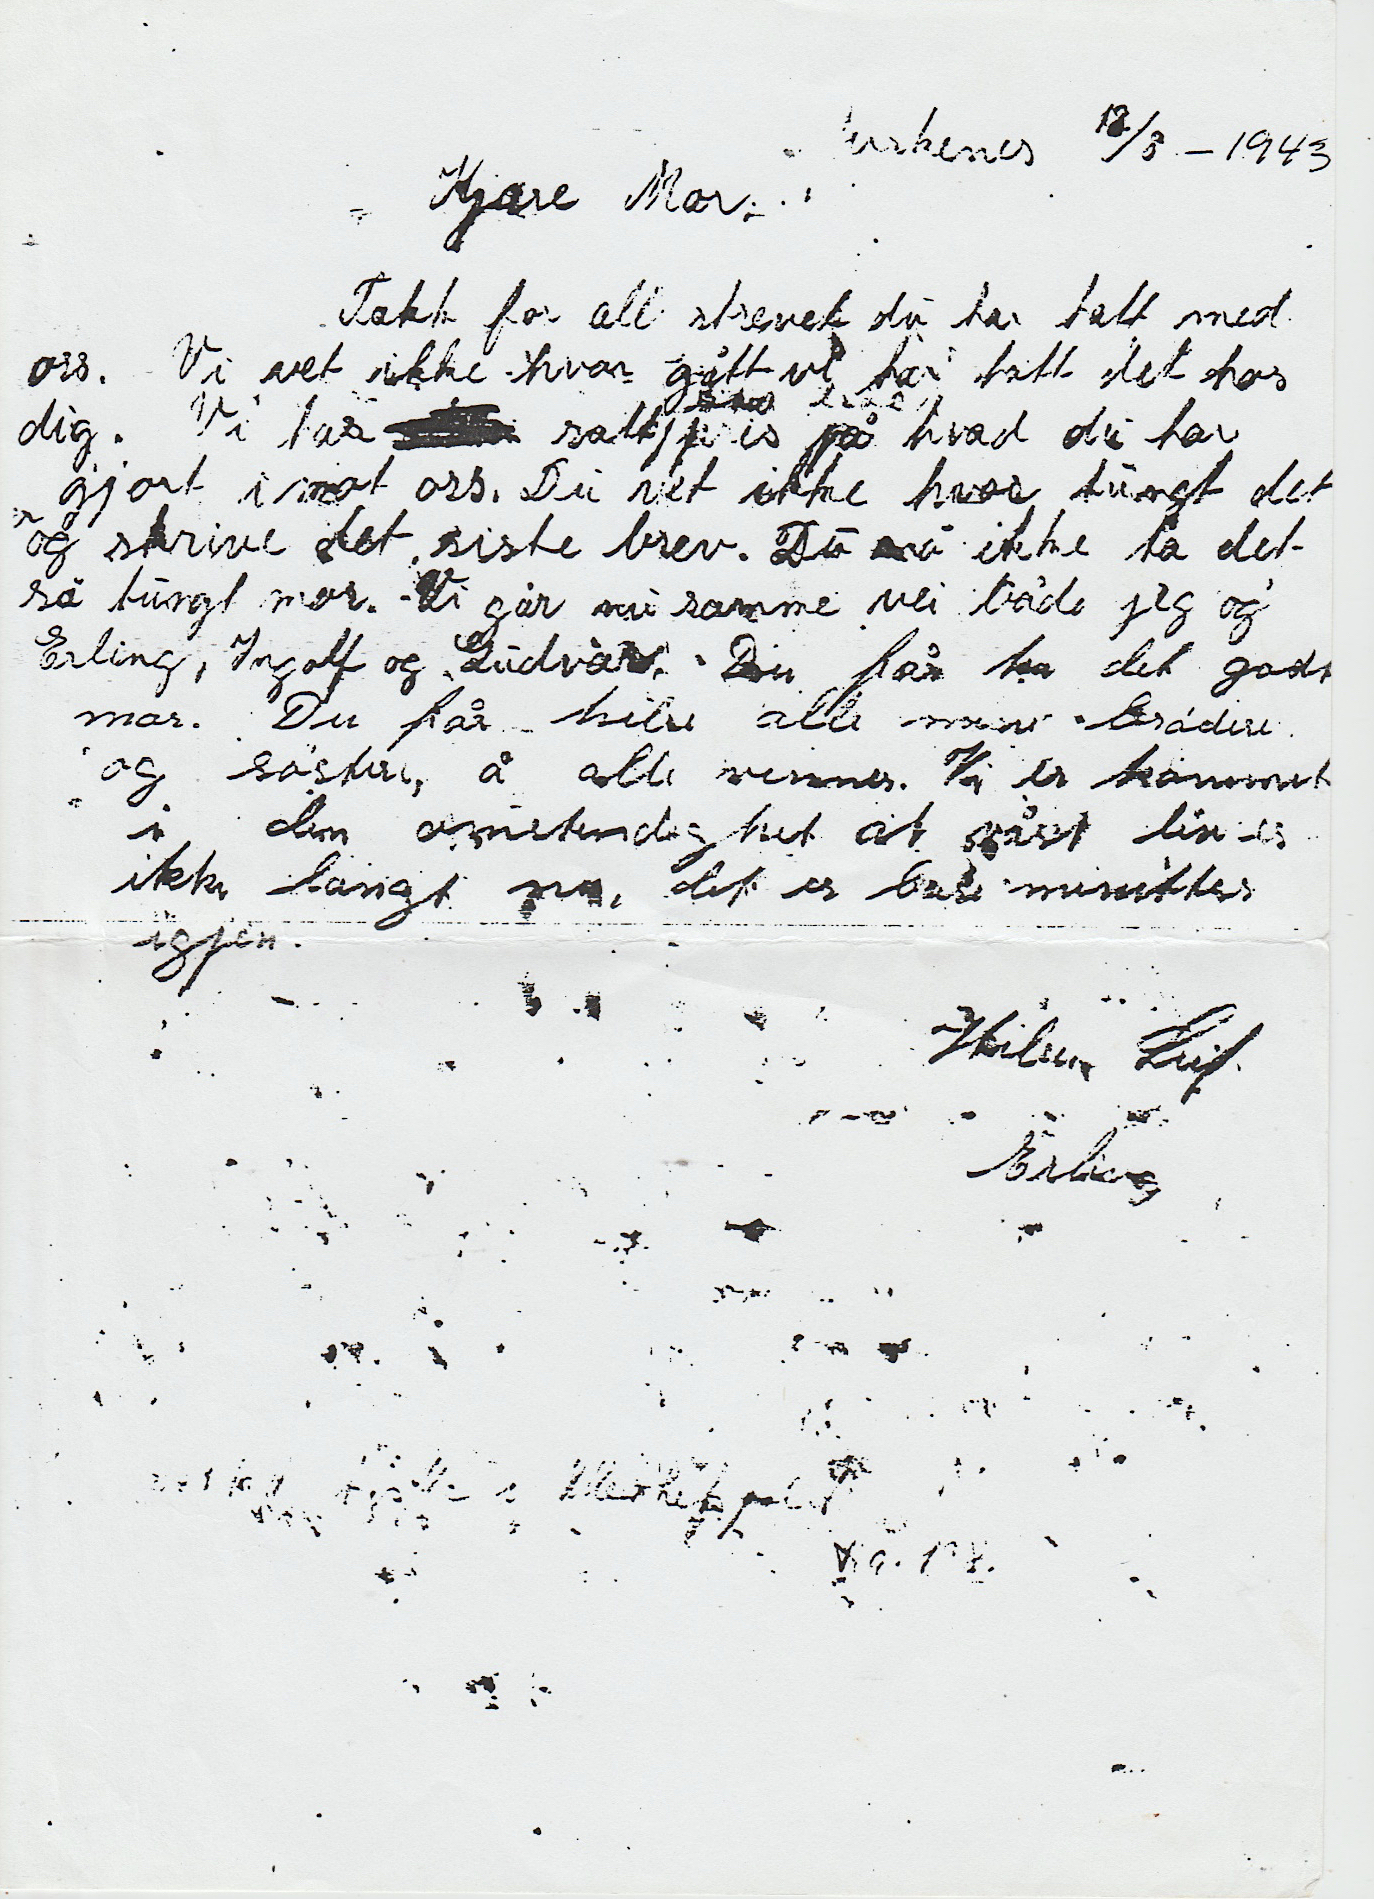 18/8 – 1943
Kjære Mor.
Takk for all strevet du har hatt med
oss. Vi vet ikke hvor gått vi har hatt det hos
dig. Vi har satt pris på hvad du har
gjort imot oss. Du vet ikke hvor tungt det
og skrive det siste brev. Du må ikke ta det
så tungt mor. Vi går nu samme vei både jeg og
Erling, Ingolf og Ludvar. Du får ha det godt
mor. Du får hilse alle mine brødere
og søstere, å alle venner. Vi er kommet
i den omstendighet at vårt liv er
ikke langt nu, det er bare minutter
igjen.
Hilsen Leif
Erling